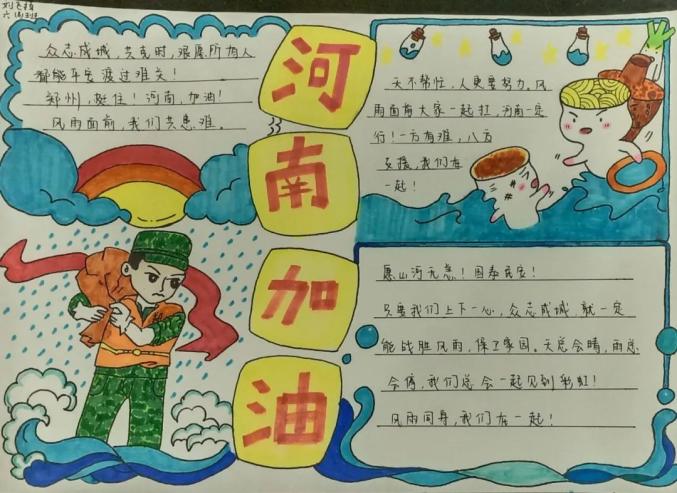 六(4)班
众志成城,共克时,艰愿所有人
都能平安渡过难关!
郑州,挺住!河南,加油!
风雨面前,我们共患难。
河
南
加
油
天不帮忙,人更要努力。风
雨面前大家一起扛,河南一定
行!一方有难,八方
支援,我们在
一起!
愿山河无恙!国泰民安!
只要我们上下一心,众志成城,就一定
能战胜风雨,保卫家园。天总会晴,雨总
会停,我们总会一起见到彩虹!
风雨同舟,我们在一起!